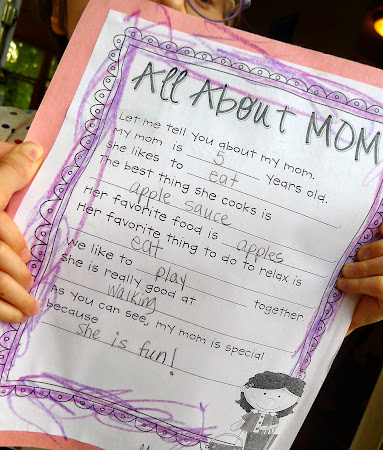 All About MOM
Let me tell you about my mom.
My mom is 5 years old.
She likes to eat
The best thing she cooks is
apple sauce
Her favorite food is apples
Her favorite thing to do to relax is
eat
We like to play together
She is really good at
walking
As you can see, my mom is special
because
she is fun!